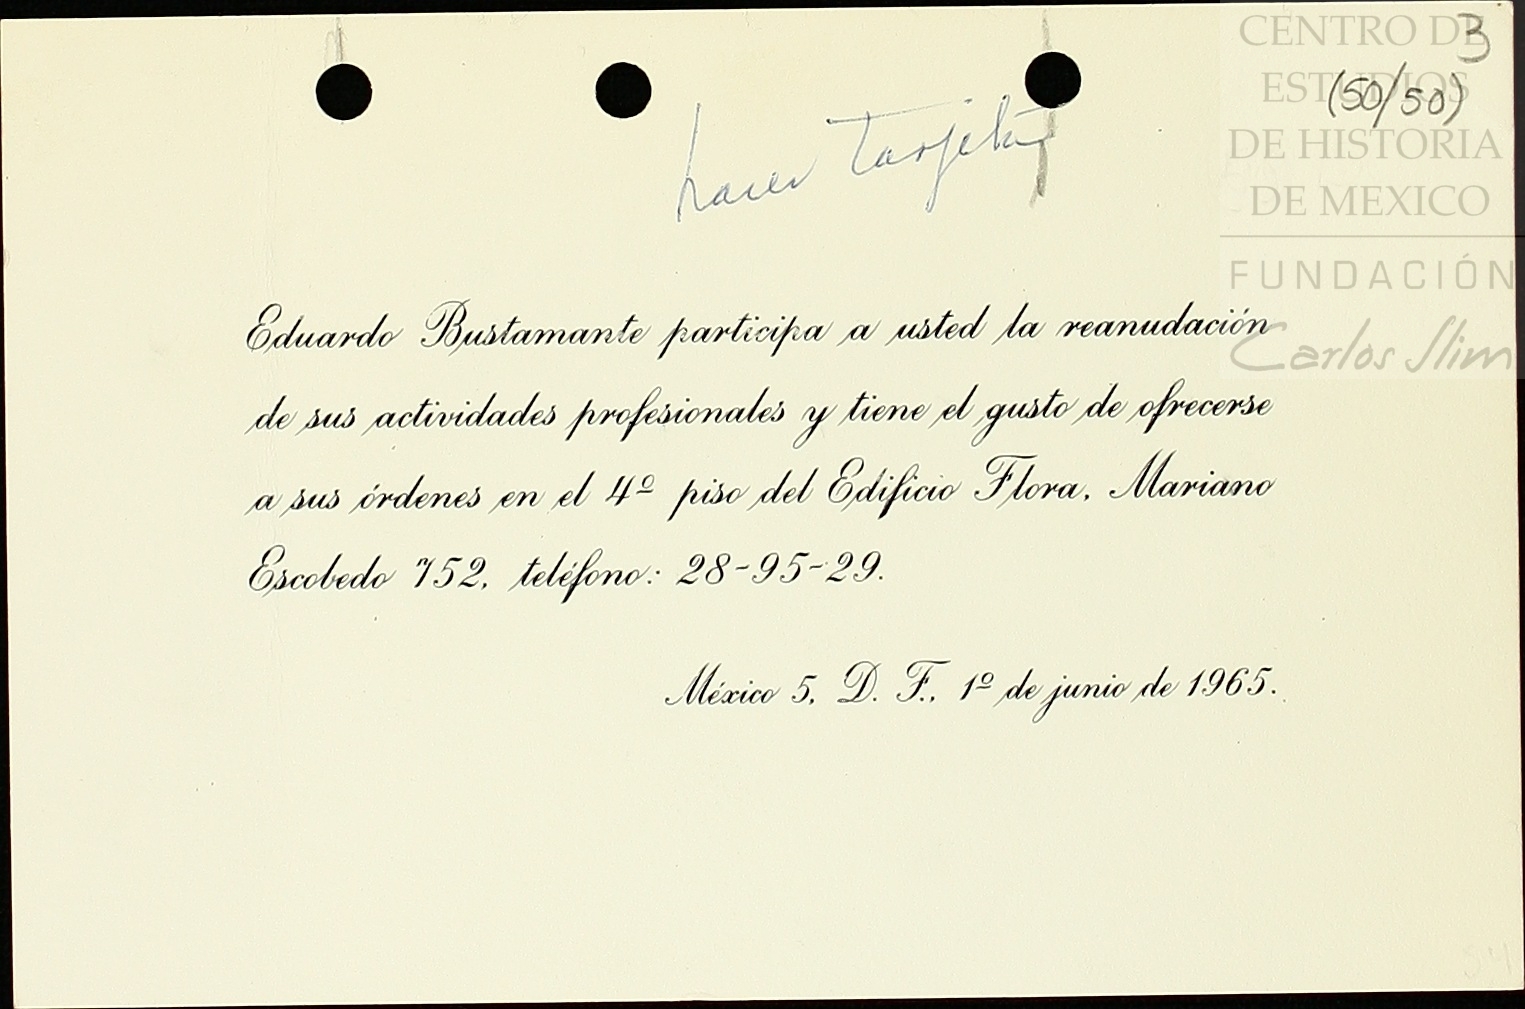 3
(50/50)
CENTRO DE
ESTUDIOS
DE HISTORIA
DE MEXICO
FUNDACIÓN
Carlos Slim
hacer tarjeta
Eduardo Bustamante participa a usted la reanudación
de sus actividades profesionales y tiene el gusto de ofrecerse
a sus órdenes en el 4º piso del Edificio Flora, Mariano
Escobedo 752, teléfono: 28-95-29.
México 5, D. F., 1º de junio de 1965.